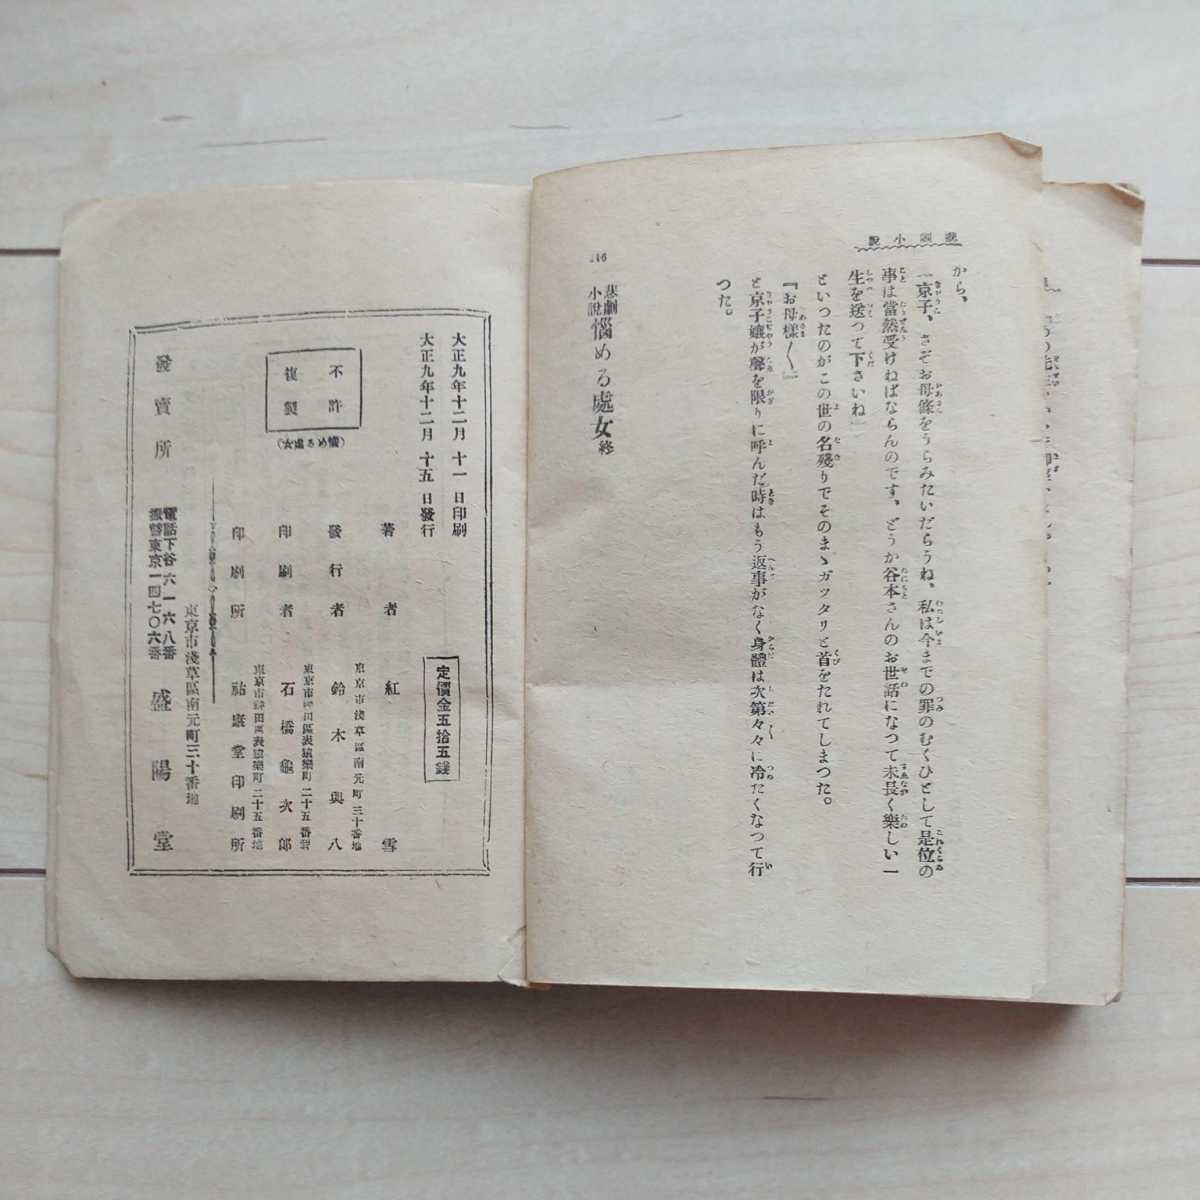 悲劇小說
から、
「京子、さぞお母樣をうらみたいだらうね、私は今までの罪のむくひとして是位の
事は當然受けねばならんのです、どうか谷本さんのお世話になつて末長く樂しい一
生を送つて下さいね」
といつたのがこの世の名殘りでそのまゝガツタリと首をたれてしまつた。
『お母樣〱』
と京子孃が聲を限りに呼んだ時はもう返事がなく身體は次第々々に冷たくなつて行
つた。
悲劇小說 惱める處女 終
大正九年十二月十一日印刷
大正九年十二月十五日發行
不許複製
(惱める處女)
定價金五拾五錢
著者 紅雪
東京市淺草區南元町三十番地
發行者 鈴木與八
東京市神田區表猿樂町二十五番地
印刷者 石橋龜次郎
東京市神田區表猿樂町二十五番地
印刷所 祐康堂印刷所
東京市淺草區南元町三十番地
發賣所 盛陽堂
電話下谷六一六八番
振替東京一四七〇六番